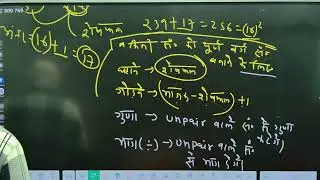 000 769
शेषफल 239+17=256=(16)²
भाग=(16)+1=(17)
किसी सं. को पूर्ण वर्ग सं.
बनाने के लिए
घटाने → शेषफल
जोड़ने → (भागफल-शेषफल)+1
गुणा → unpair वाले सं. से गुणा
करेंगे
भाग(÷) → unpair वाले सं.
से भाग देंगे